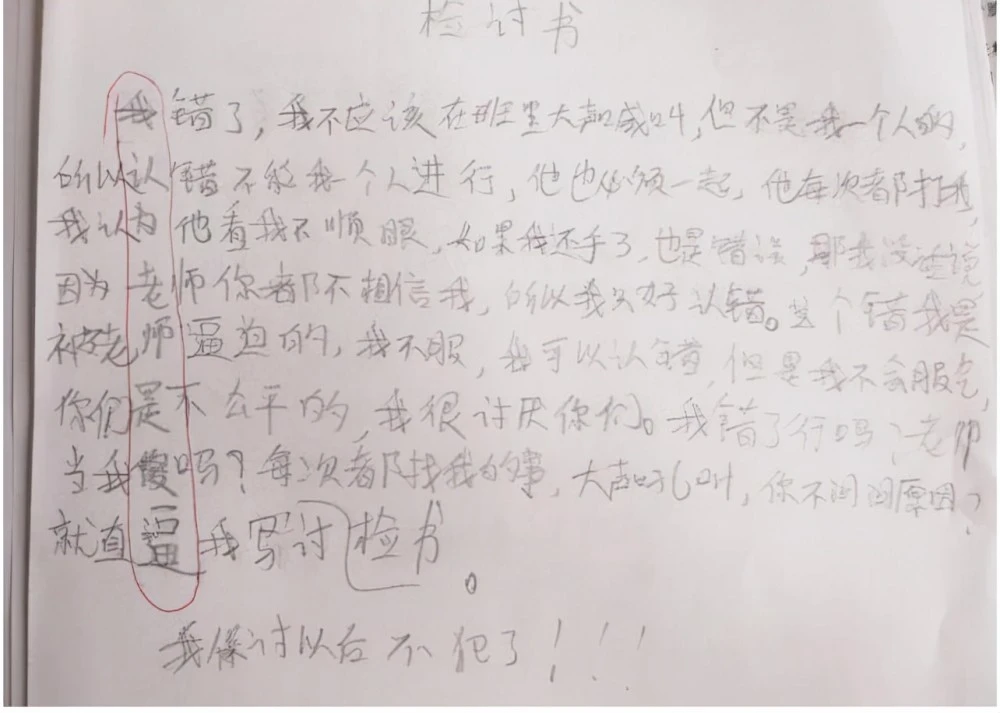 检讨书
我错了，我不应该在班里大声喊叫，但不是我一个人的，
所以认错不能我一个人进行，他也必须一起，他每次都打我，
我认为他看我不顺眼，如果我还手了，也是错误，那我没话说，
因为老师你都不相信我，所以我只好认错。这个错我是
被老师逼迫的，我不服，我可以认错，但是我不会服气，
你们是不公平的，我很讨厌你们。我错了行吗？老师
当我傻吗？每次都找我的事，大声吼叫，你不问问原因？
就直逼我写讨检书。
我保讨以后不犯了！！！